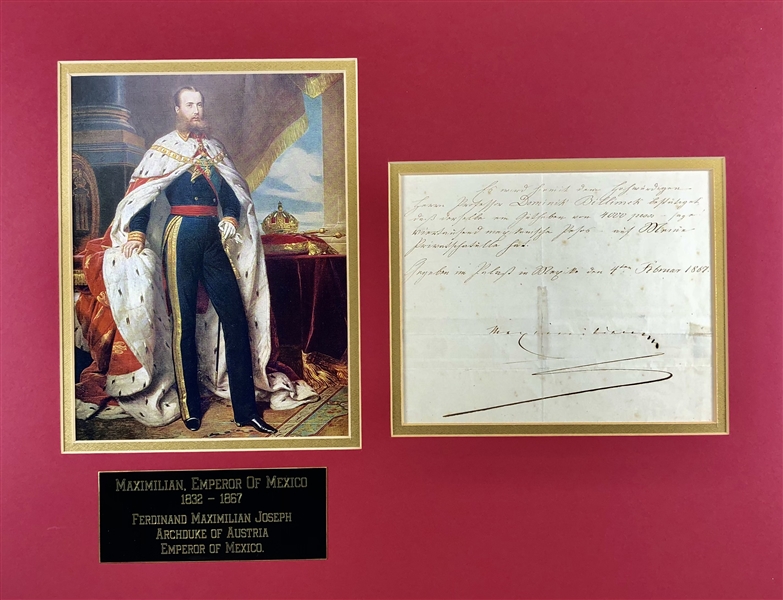 Es wird hiemit dem hochwürdigen
Herrn Professor Dominik Bilimek bestätigt
daß derselbe ein Guthaben von 4000 pesos sage
viertausend mexikanische Pesos auf Meine
Privatschatulle hat.
Gegeben im Palast in Mexiko den 4ten Februar 1867.
Maximilian
MAXIMILIAN, EMPEROR OF MEXICO
1832 – 1867
FERDINAND MAXIMILIAN JOSEPH
ARCHDUKE OF AUSTRIA
EMPEROR OF MEXICO.